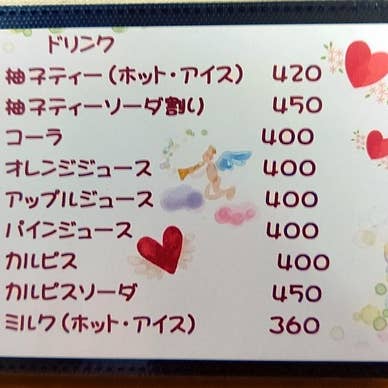 ドリンク
柚子ティー(ホット・アイス) 420
柚子ティーソーダ割り 450
コーラ 400
オレンジジュース 400
アップルジュース 400
パインジュース 400
カルピス 400
カルピスソーダ 450
ミルク(ホット・アイス) 360